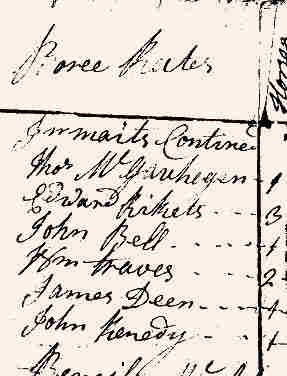 Boree Rates
Horses
Inmaits Contined
Thos McGauhegen - 1
Edward Rikets - - - 3
John Bell - - - 1
Wm Traves - - - 2
James Deen - - - 4
John Kenedy - - 1